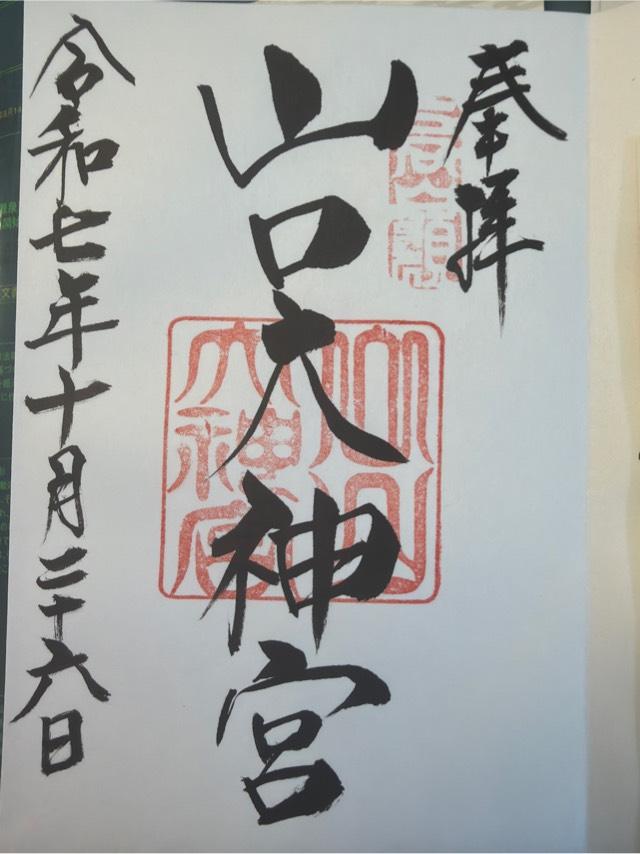 奉拝
山口大神宮
令和七年十月二十六日
山口
大神宮